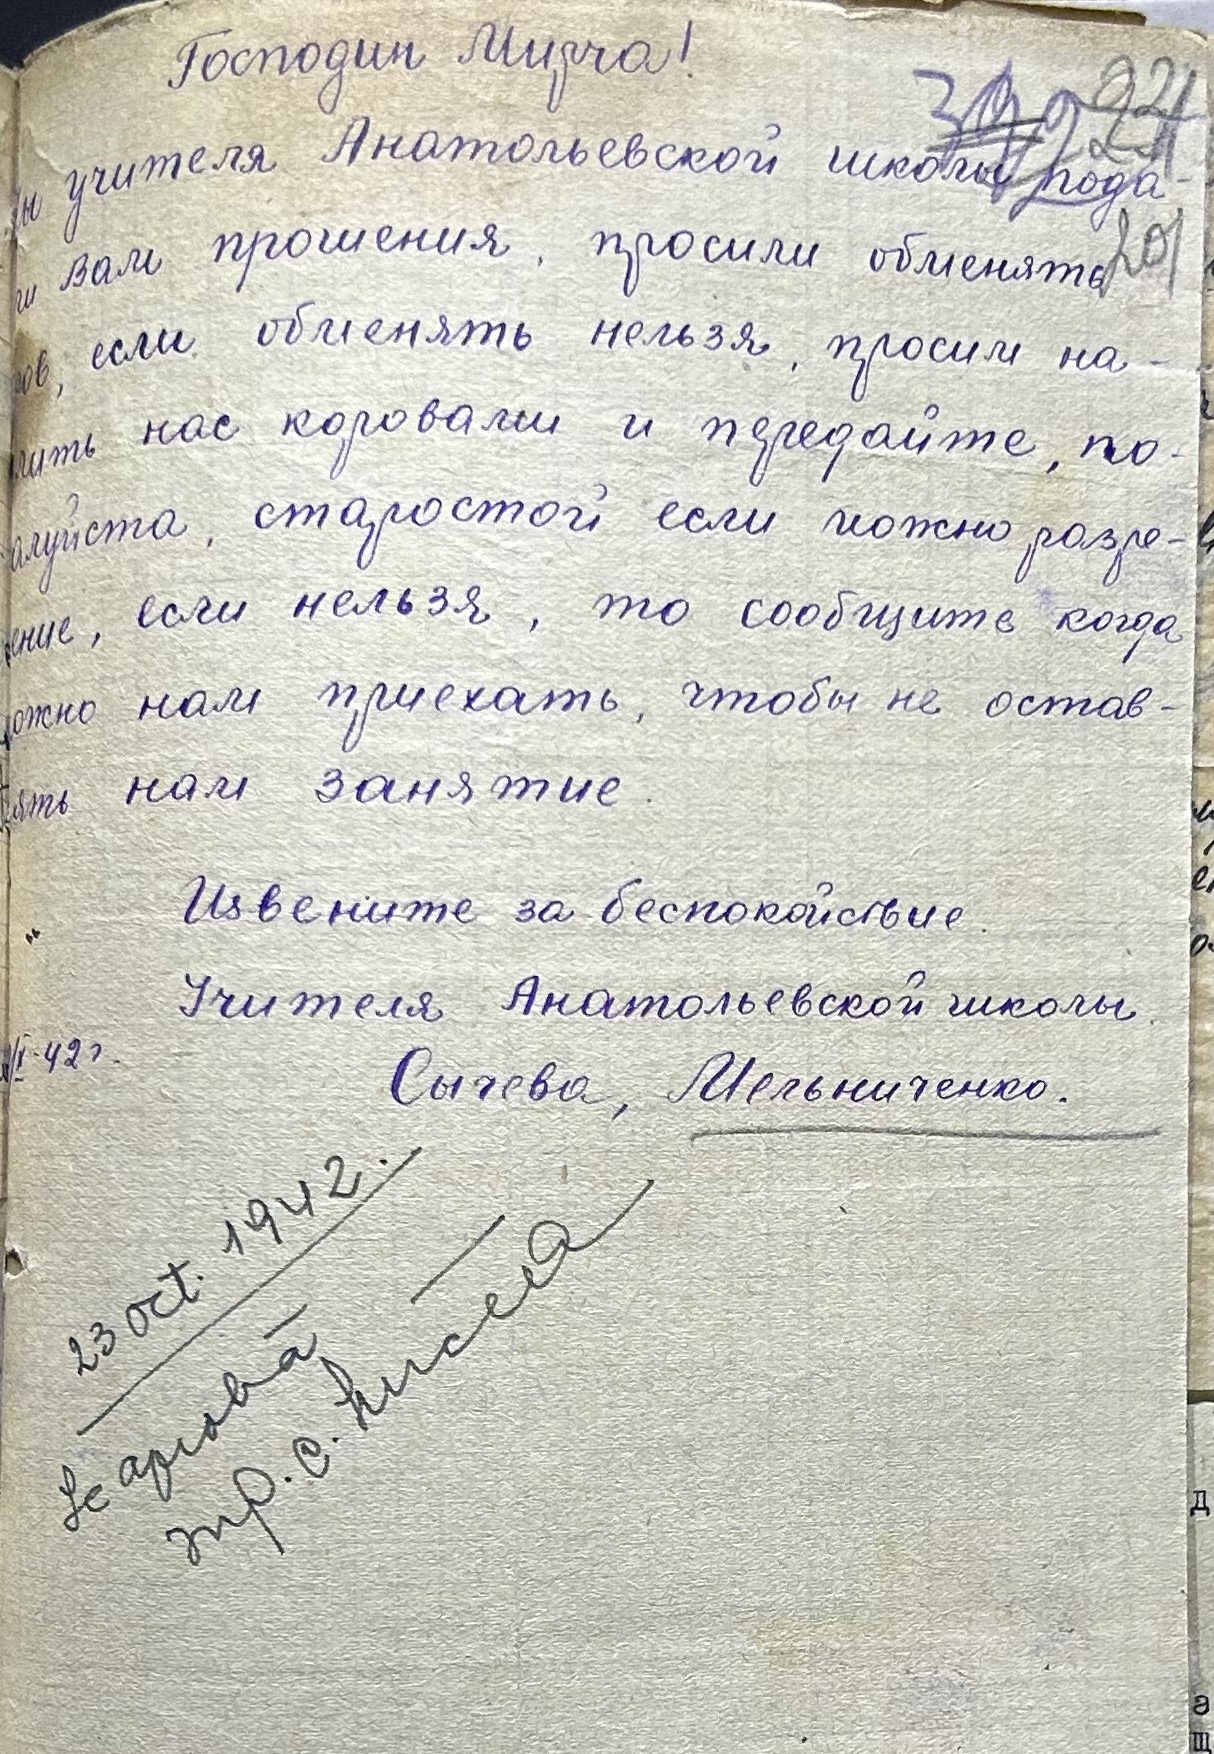 Господин Мирча!
учителя Анатольевской школы пода-
ли Вам прошения, просили обменять
ров, если обменять нельзя, просим на-
лить нас коровами и передайте, по-
алуйста, старостой если можно разре-
ение, если нельзя, то сообщите когда
ожно нам приехать, чтобы не остав-
лять нам занятие.
Извените за беспокойствие.
Учителя Анатольевской школы
42 г.
Сычева, Мельниченко.
23 oct. 1942.
Se aprobă